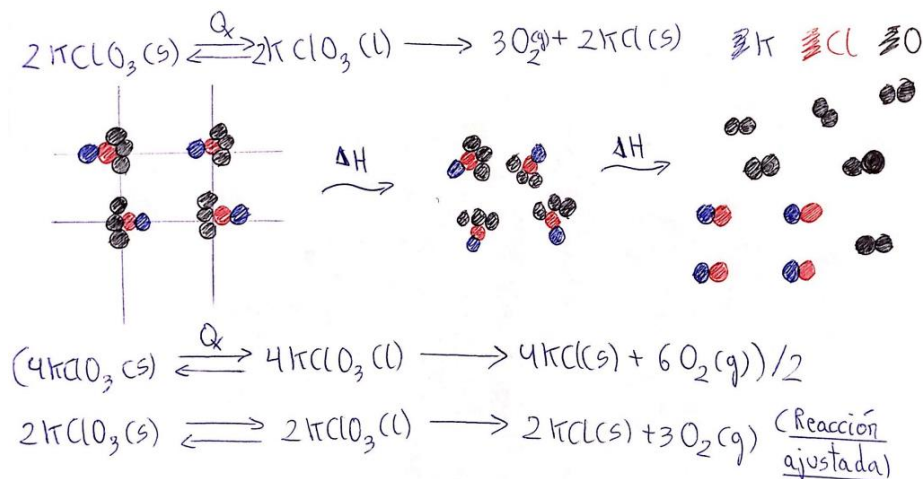 Qx
2KClO₃(s) ⇌ 2KClO₃(l) → 3O₂(g) + 2KCl(s) K Cl O
ΔH ΔH
Qx
(4KClO₃(s) ⇌ 4KClO₃(l) → 4KCl(s) + 6O₂(g))/2
2KClO₃(s) ⇌ 2KClO₃(l) → 2KCl(s) + 3O₂(g) (Reacción
ajustada)